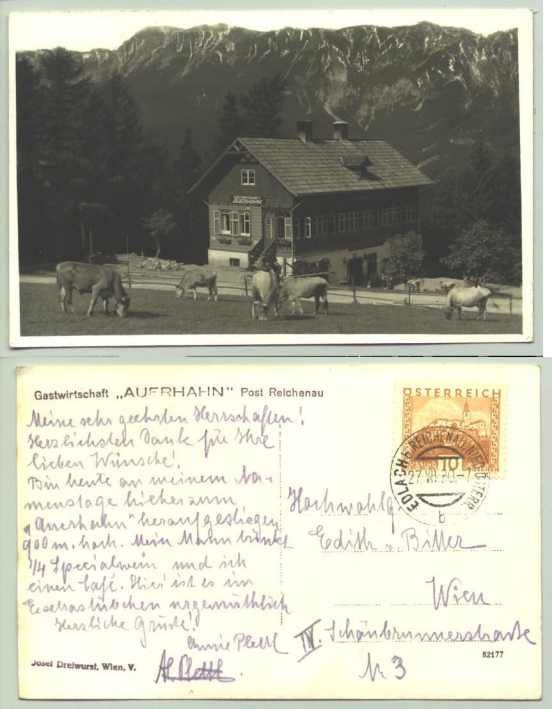 Gastwirtschaft „AUERHAHN" Post Reichenau
Meine sehr geehrten Herrschaften!
Herzlichsten Dank für Ihre
lieben Wünsche!
Bin heute an meinem Na-
menstage hieher zum
„Auerhahn" heraufgestiegen
900 m. hoch. Mein Mann trinkt
1/4 Specialwein und ich
einen Café. Hier ist es im
Extrastübchen urgemütlich
Herzliche Grüße!
Annie Plettl
Josef Dreiwurst, Wien, V.
ÖSTERREICH
10
EDLACH b. REICHENAU
b
Hochwohlg
Edith v. Bitter
Wien
IV. Schönbrunnerstraße
Nr. 3
52177